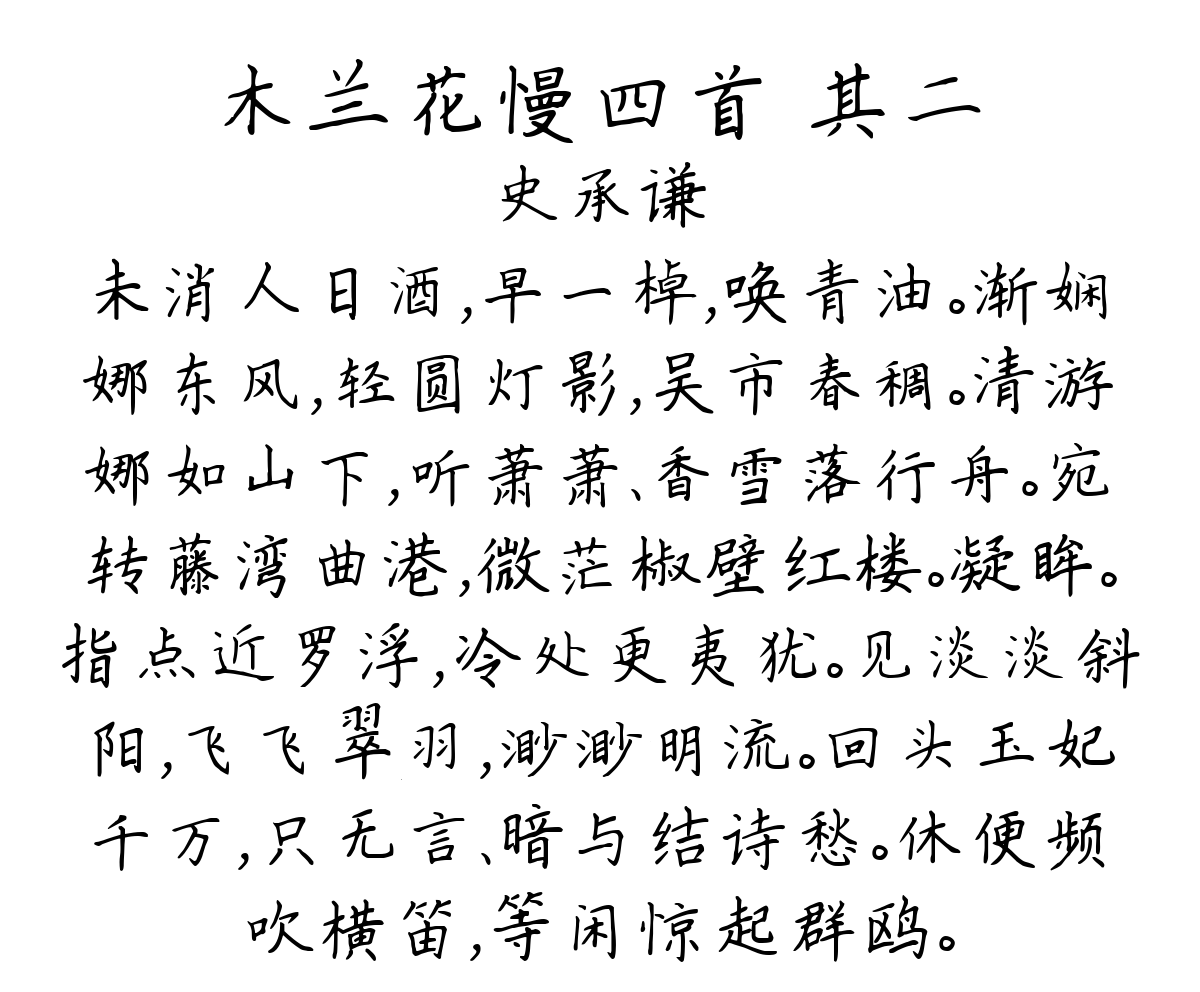 木兰花慢四首 其二
史承谦
未消人日酒,早一棹,唤青油。渐娴
娜东风,轻圆灯影,吴市春稠。清游
娜如山下,听萧萧、香雪落行舟。宛
转藤湾曲港,微茫椒壁红楼。凝眸。
指点近罗浮,冷处更夷犹。见淡淡斜
阳,飞飞翠羽,渺渺明流。回头玉妃
千万,只无言、暗与结诗愁。休便频
吹横笛,等闲惊起群鸥。